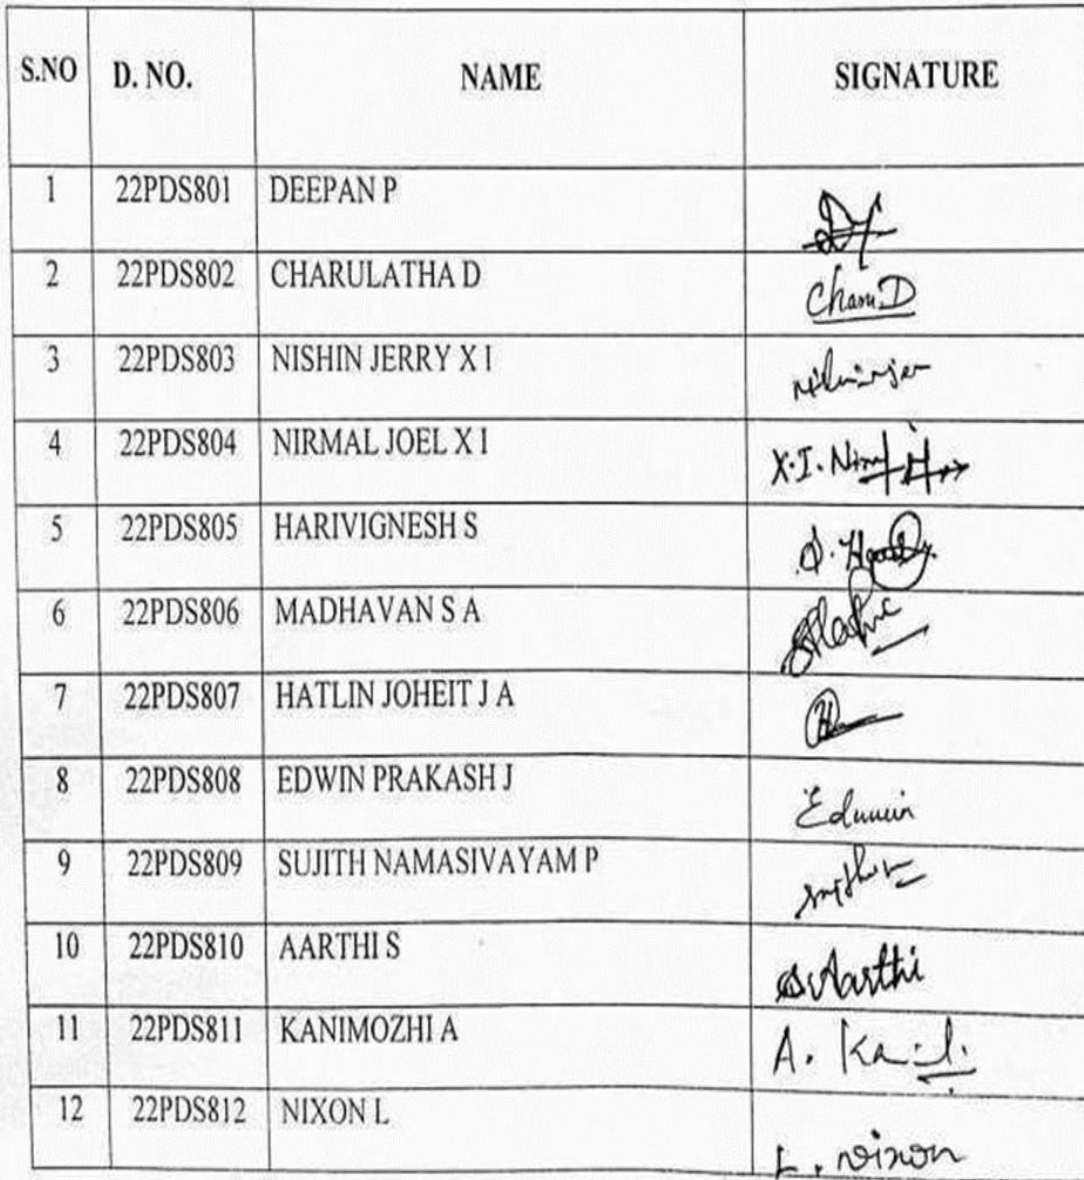 S.NO D. NO. NAME SIGNATURE
1 22PDS801 DEEPAN P
2 22PDS802 CHARULATHA D Charu.D
3 22PDS803 NISHIN JERRY X I
4 22PDS804 NIRMAL JOEL X I X.I.
5 22PDS805 HARIVIGNESH S
6 22PDS806 MADHAVAN S A
7 22PDS807 HATLIN JOHEIT J A
8 22PDS808 EDWIN PRAKASH J
9 22PDS809 SUJITH NAMASIVAYAM P
10 22PDS810 AARTHI S S.Aarthi
11 22PDS811 KANIMOZHI A A.
12 22PDS812 NIXON L L. Nixon